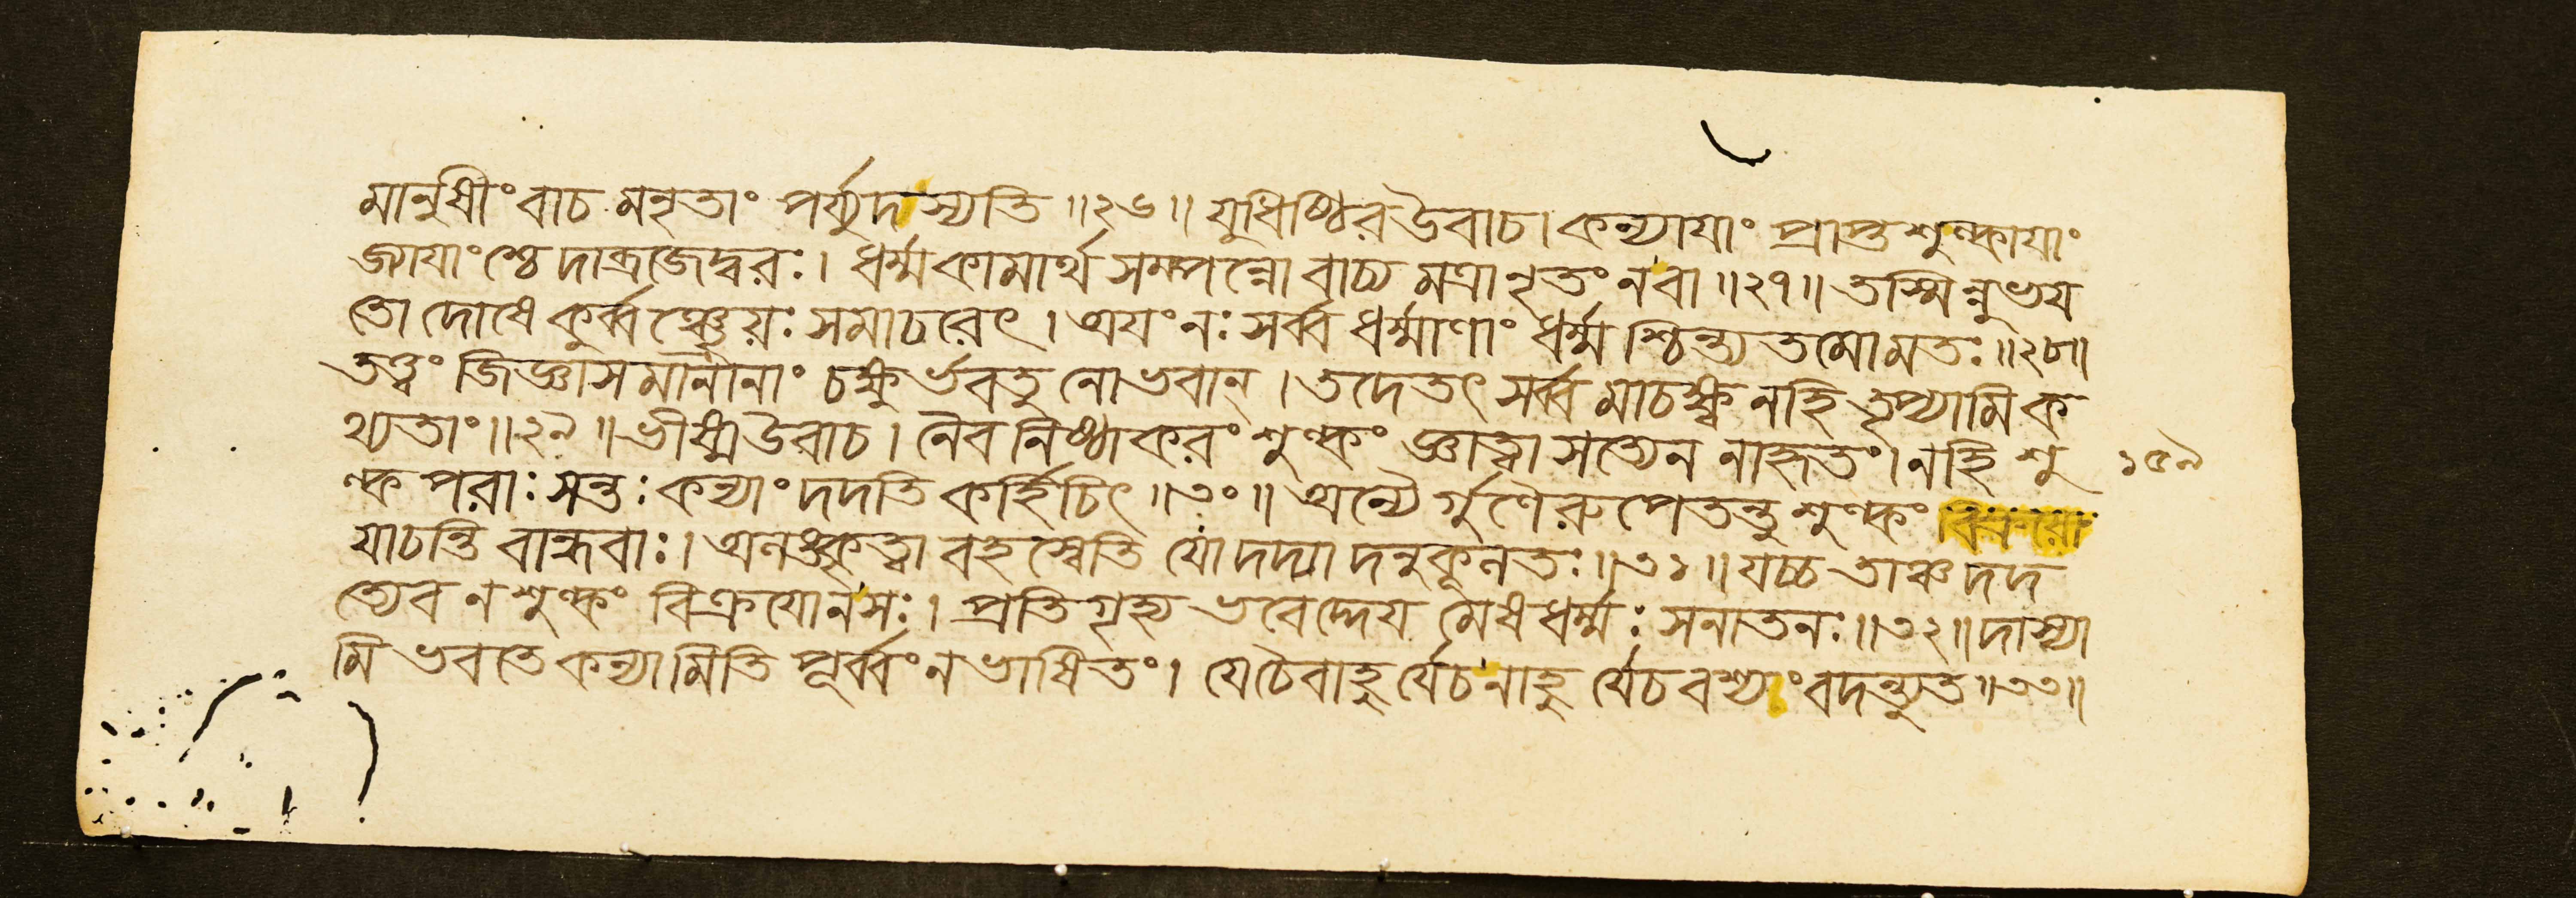 মানুষীং বাচ মনৃতাং পর্য্যুদস্যতি ॥২৬॥ যুধিষ্ঠির উবাচ। কন্যাযাং প্রাপ্তশুল্কাযাং
জ্যাযাংশ্চেদাব্রজেদ্বরঃ। ধর্ম্মকামার্থ সম্পন্নো বাচ্য মত্রানৃতং নবা ॥২৭॥ তস্মিন্নুভয
তো দোষে কুর্ব্বঞ্ছ্রেয়ঃ সমাচরেৎ। অযং নঃ সর্ব্ব ধর্ম্মাণাং ধর্ম্মশ্চিন্ত্য তমো মতঃ ॥২৮॥
তত্ত্বং জিজ্ঞাসমানানাং চক্ষুর্ভবতু নো ভবান্। তদেতৎ সর্ব্ব মাচক্ষ্ব নহি তৃপ্যামি ক
থ্যতাং ॥২৯॥ ভীষ্ম উবাচ। নৈব নিষ্ঠাকরং শুল্কং জ্ঞাত্বা সত্যেন নাহৃতং। নহি শু
ল্ক পরাঃ সন্তঃ কন্যাং দদতি কর্হিচিৎ ॥৩০॥ অন্যৈর্গুণৈরুপেতন্তু শুল্কং
যাচন্তি বান্ধবাঃ। অলঙ্কৃত্বা বহস্বেতি যো দদ্যা দনুকূলতঃ ॥৩১॥ যচ্চ তাঞ্চ দদ
ত্যেব ন শুল্কং বিক্রযো ন সঃ। প্রতিগৃহ্য ভবেদ্দেয মেষ ধর্ম্মঃ সনাতনঃ ॥৩২॥ দাস্যা
মি ভবতে কন্যামিতি পূর্ব্বং ন ভাষিতং। যে চৈবাহু র্যে চ নাহু র্যে চ বশ্যং বদন্ত্যুত ॥৩৩॥
১৫৯